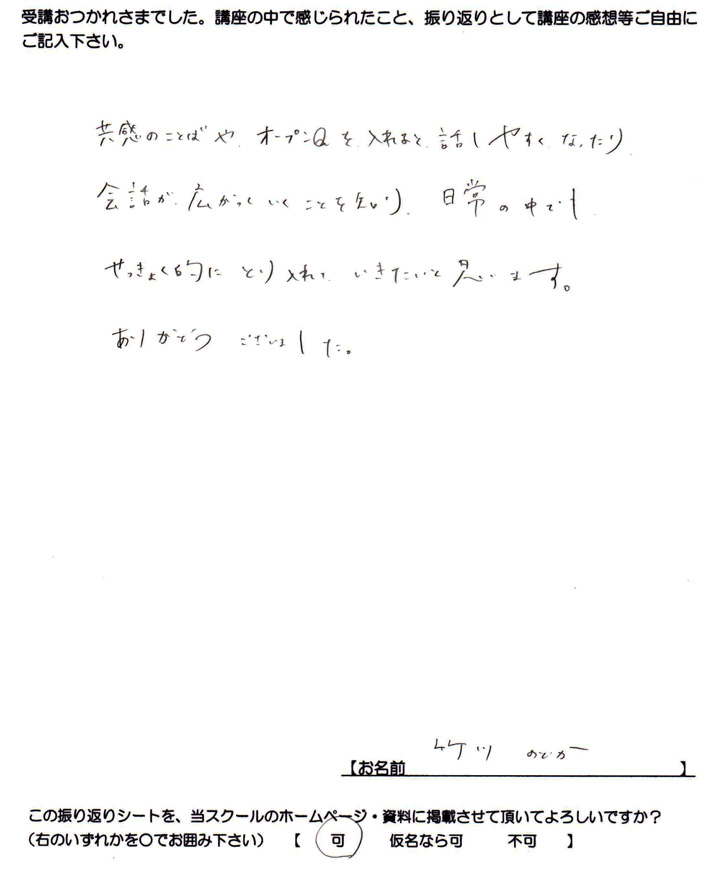 受講おつかれさまでした。講座の中で感じられたこと、振り返りとして講座の感想等ご自由に
ご記入下さい。
共感のことばや、オープンQを入れると、話しやすくなったり
会話が広がっていくことを知り、日常の中でも
せっきょく的にとり入れていきたいと思います。
ありがとうございました。
【お名前 竹川 のどか 】
この振り返りシートを、当スクールのホームページ・資料に掲載させて頂いてよろしいですか？
（右のいずれかを〇でお囲み下さい） 【 可 仮名なら可 不可 】